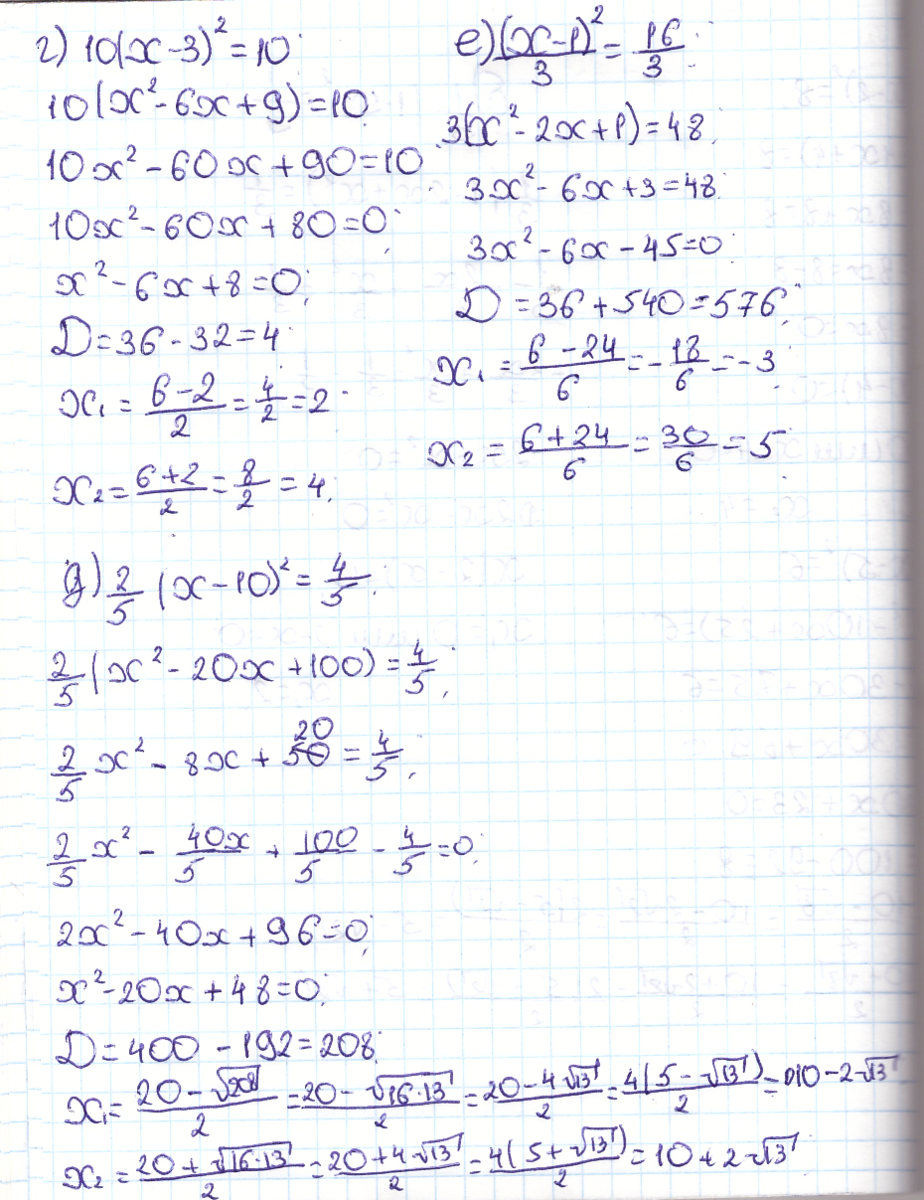 г) 10(x-3)² = 10;
10(x² - 6x + 9) = 10;
10x² - 60x + 90 = 10;
10x² - 60x + 80 = 0;
x² - 6x + 8 = 0;
D = 36 - 32 = 4;
x₁ = (6-2)/2 = 4/2 = 2;
x₂ = (6+2)/2 = 8/2 = 4;
е) (x-1)²/3 = 16/3;
3(x² - 2x + 1) = 48;
3x² - 6x + 3 = 48;
3x² - 6x - 45 = 0;
D = 36 + 540 = 576;
x₁ = (6 - 24)/6 = -18/6 = -3;
x₂ = (6 + 24)/6 = 30/6 = 5;
д) 2/5 (x - 10)² = 4/5;
2/5 (x² - 20x + 100) = 4/5;
2/5 x² - 8x + 20 = 4/5;
2/5 x² - 40x/5 + 100/5 - 4/5 = 0;
2x² - 40x + 96 = 0;
x² - 20x + 48 = 0;
D = 400 - 192 = 208;
x₁ = (20 - √208)/2 = (20 - √16·13)/2 = (20 - 4√13)/2 = 4(5 - √13)/2 = 10 - 2√13
x₂ = (20 + √16·13)/2 = (20 + 4√13)/2 = 4(5 + √13)/2 = 10 + 2√13